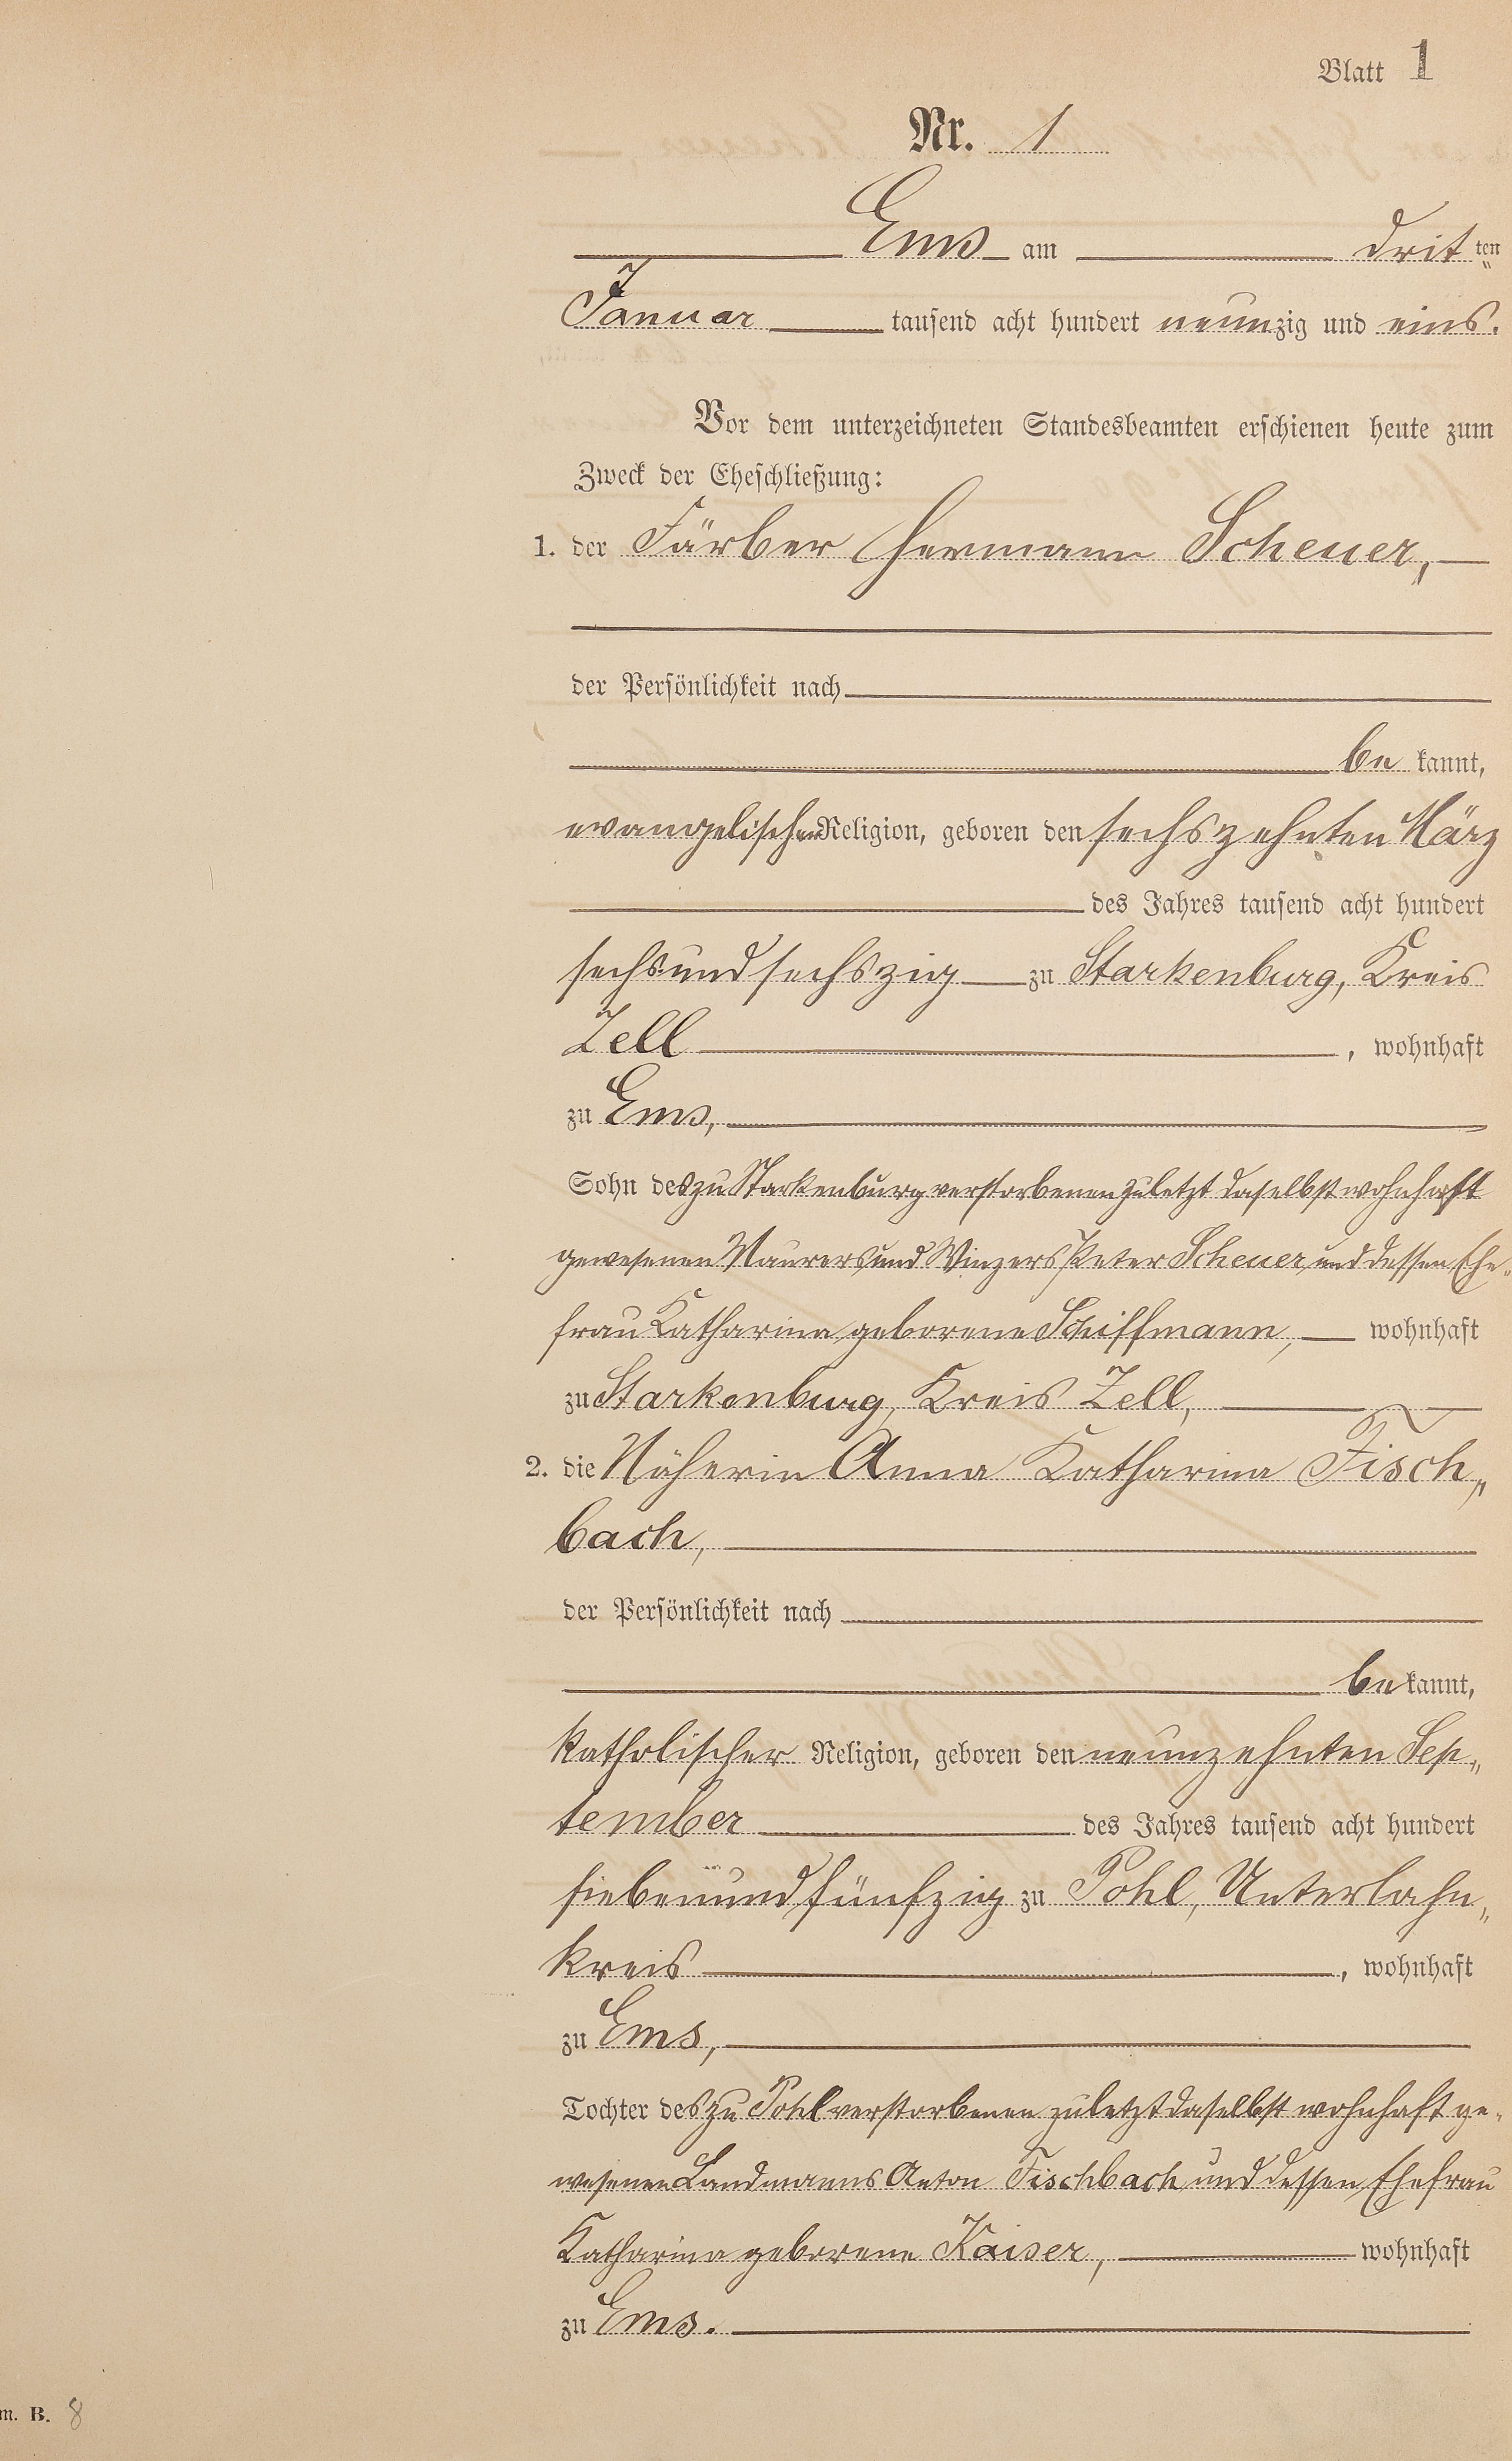 Blatt 1
Nr. 1
Ems am drit ten
Januar tausend acht hundert neunzig und eins.
Vor dem unterzeichneten Standesbeamten erschienen heute zum
Zweck der Eheschließung:
1. der Färber Hermann Scheuer,
der Persönlichkeit nach
be kannt,
evangelischer Religion, geboren den sechszehnten März
des Jahres tausend acht hundert
sechsundsechszig zu Starkenburg, Kreis
Zell, wohnhaft
zu Ems,
Sohn des zu Starkenburg verstorbenen zuletzt daselbst wohnhaft
gewesenen Maurers und Winzers Peter Scheuer, und dessen Ehe-
frau Katharina geborene Schiffmann, wohnhaft
zu Starkenburg, Kreis Zell,
2. die Näherin Anna Katharina Fisch„
bach,
der Persönlichkeit nach
be kannt,
katholischer Religion, geboren den neunzehnten Sep„
tember des Jahres tausend acht hundert
siebenundfünfzig zu Pohl, Unterlahn„
kreis, wohnhaft
zu Ems,
Tochter des zu Pohl verstorbenen zuletzt daselbst wohnhaft ge-
wesenen Landmanns Anton Fischbach und dessen Ehefrau
Katharina geborene Kaiser, wohnhaft
zu Ems.
m. B. 8